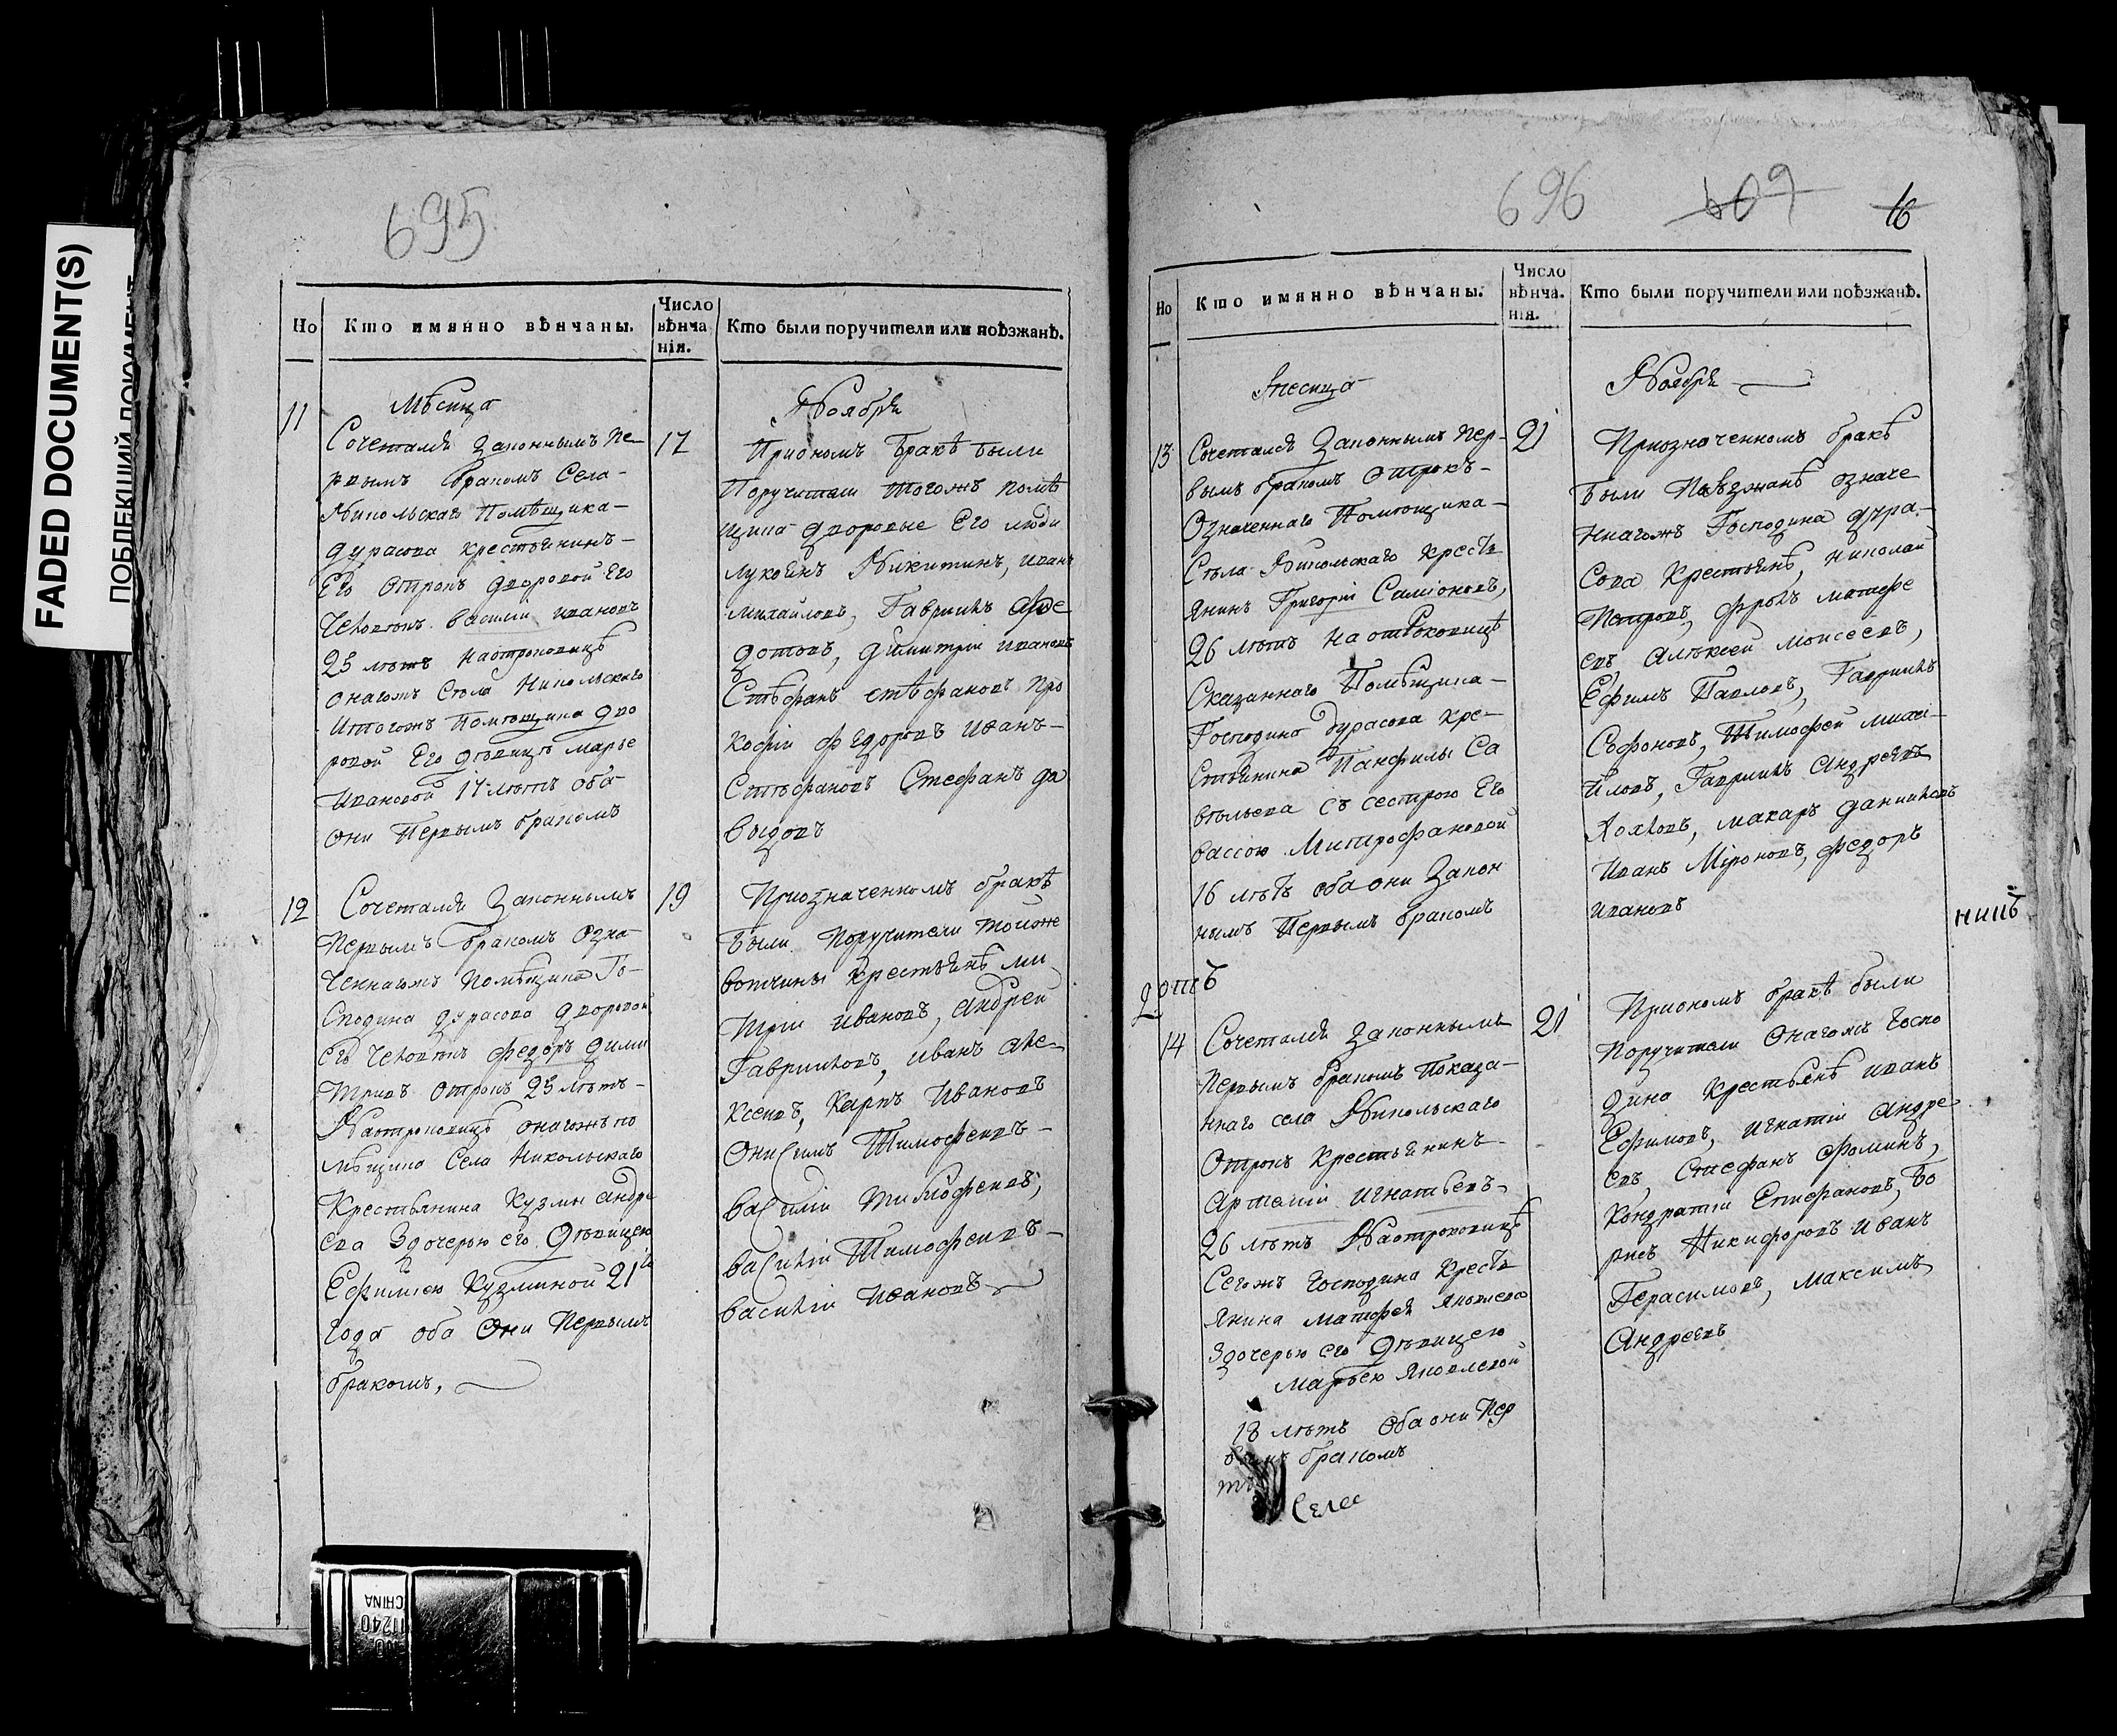 FADED DOCUMENT(S)
695
Но
Кто имянно вѣнчаны.
Число вѣнча нія.
Кто были поручители или поѣзжанѣ.
Мѣсица
Ноября
11
Сочетался Законнымъ Пе-
рвымъ бракомъ Села-
Никольскаго Помѣщика-
дурасова крестьянинъ-
Его Отрокъ дворовой Его
Человѣкъ василіи ивановъ
25 лѣтъ наотроковицѣ
онагожъ Села Никольского
итогожъ помѣщика дво
ровой Его дѣвицѣ марье
ивановой 17 лѣтъ оба
они Первымъ бракомъ
17
Приономъ бракѣ были
Поручители тогожъ помѣ
щика дворовые Его люди
лукоянъ Никитинъ, иванъ
михайловъ, Гаврилъ Фе
дотовъ, димитріи ивановъ
Стѣфанъ стѣфановъ про
кофіи федоровъ иванъ-
Стѣфановъ Стефанъ да
выдовъ
12
Сочетался Законнымъ
Первымъ бракомъ Озна
ченнагожъ помѣщика Го-
сподина дурасова дворовой
его человѣкъ федоръ дими
тріевъ отрокъ 25 лѣтъ-
Наотроковицѣ онагожъ по
мѣщика Села Никольскаго
Крестьянина Кузмы андре
ева Здочерью его дѣвицею
Ефимиею Кузминой 21
года оба Они Первымъ
бракомъ,
19
Приозначенномъ бракѣ
были Поручители тоиже
вотчины крестьянѣ ми
тріи ивановъ, андреи
Гавриловъ, иванъ але
ксеевъ, Карпъ Ивановъ
Онисимъ Тимофеевъ-
василіи тимофеевъ,
василіи Тимофеевъ-
василіи ивановъ
696 609 16
Но
Кто имянно вѣнчаны.
Число вѣнча. нія.
Кто были поручители или поѣзжанѣ.
месица
Ноября
13
Сочетался Законнымъ пер-
вымъ бракомъ отрокъ-
Означеннаго Помѣщика-
Села Никольскаго крестья
янинъ Григоріи Самсоновъ,
26 лѣтъ на отроковицѣ
Сказаннаго Помѣщика-
Господина дурасова кре-
стьянина Панфилы Са
вѣльева съ сестрою Его
вассою Митрофановой
16 лѣтъ оба они Закон
нымъ Первымъ бракомъ
21
Приозначенномъ бракѣ
были Поѣзжанѣ означе
ннагожъ Господина дура-
сова Крестьянѣ, николаи
Петровъ, фролъ матфе
евъ алѣксеи моисеевъ,
Ефимъ Павловъ, Гаврилъ
Софоновъ, Тимофеи миха-
иловъ, Гаврилъ андреевъ
макаръ даниловъ
иванъ Міроновъ, федоръ
ивановъ
14
Сочетался Законнымъ
Первымъ бракомъ Показа-
ннаго села Никольскаго
Отрокъ Крестьянинъ-
Артеміи игнатьевъ-
26 лѣтъ Наотроковицѣ
Сегожъ господина Кресть
янина матфея Яковлева
Здочерью его дѣвицею
марьею Яковлевой
18 лѣтъ Оба они Пер
вымъ бракомъ
Селес
21
Приономъ бракѣ были
поручители Онагожъ госпо
дина Крестьянѣ иванъ
Ефимовъ, игнатіи андре
евъ, Стефанъ фоминъ,
Кондратіи Епифановъ, Бо
рисъ Никифоровъ иванъ
Герасимовъ, максимъ
Андреевъ